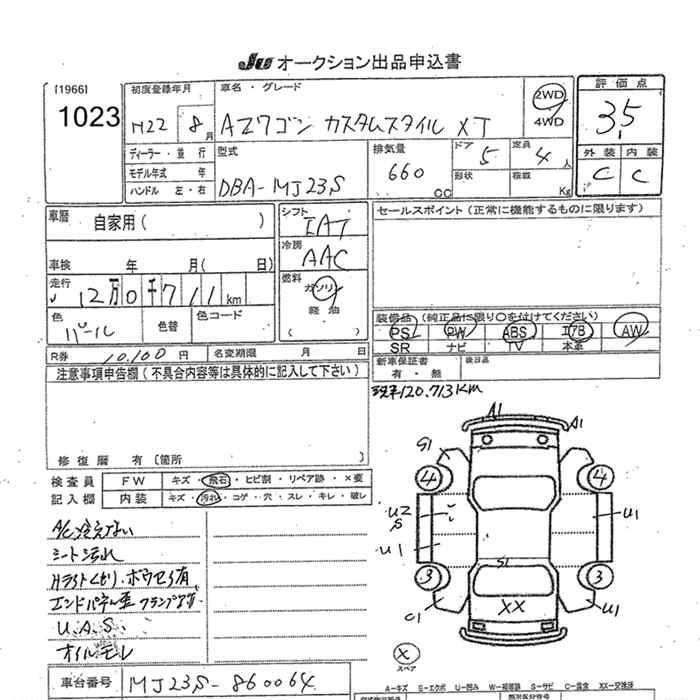 JU オークション出品申込書
[1966]
1023
初度登録年月
H22 8月
車名・グレード
AZワゴン カスタムスタイル XT
2WD
4WD
評価点
3.5
ディーラー・並行
モデル年式 年
ハンドル 左・右
型式
DBA-MJ23S
排気量
660 CC
ドア
5
形状
定員
4人
積載 Kg
外装 内装
C C
車歴 自家用( )
車検 年 月( 日)
走行
12万0千711km
色
パール
色替
色コード
シフト
IAT
冷房
AAC
燃料
ガソリン
軽油
セールスポイント(正常に機能するものに限ります)
装備品(純正品に限り○を付けてください)
PS PW ABS エアB AW
SR ナビ TV 本革
R券 10,100円 名変期限 月 日
新車保証書
有・無
後日品
注意事項申告欄(不具合内容等は具体的に記入して下さい)
120.713KM
修復歴 有〔箇所 〕
検査員
記入欄
FW キズ・飛石・ヒビ割・リペア跡・×要
内装 キズ・汚れ・コゲ・穴・スレ・キレ・破レ
A/C冷えない
シート汚れ
U.A.S.
オイルモレ
A1
A1
G1
4
4
U2
S
U1
U1
3
3
S1
XX
C1
U1
×
スペア
車台番号 MJ23S-860064
A-キズ